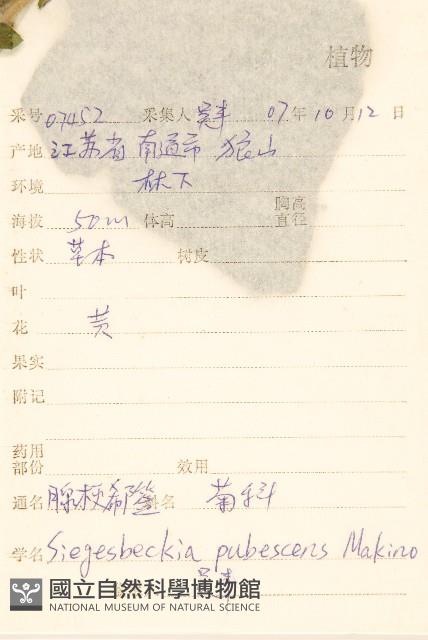 植物
采号 07452 采集人 吴丰 07年 10月 12日
产地 江苏省 南通市 狼山
环境 林下
胸高
海拔 50m 体高 直径
性状 草本 树皮
叶
花 黄
果实
附记
药用
部份 效用
通名 腺梗希簽 科名 菊科
学名 Siegesbeckia pubescens Makino
國立自然科學博物館
NATIONAL MUSEUM OF NATURAL SCIENCE